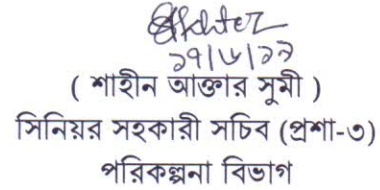 ১৭/৬/১৯
( শাহীন আক্তার সুমী )
সিনিয়র সহকারী সচিব (প্রশা-৩)
পরিকল্পনা বিভাগ